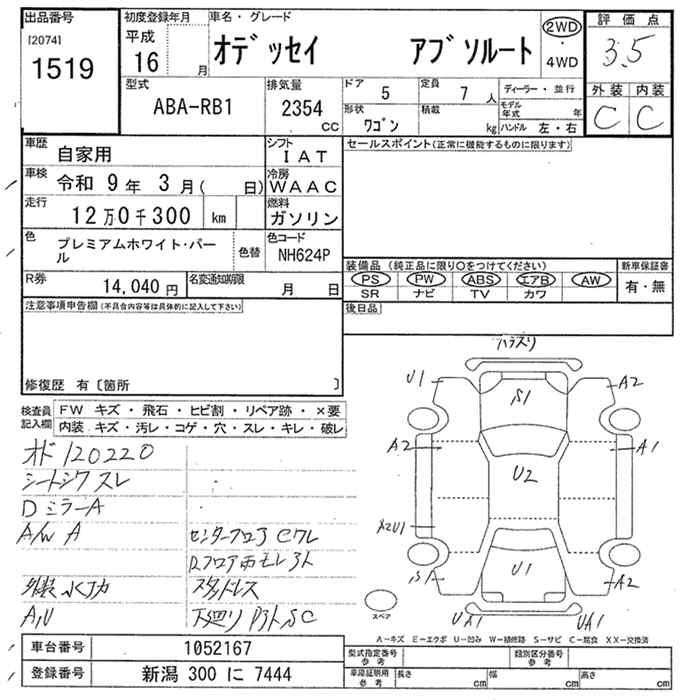 出品番号
[2074]
1519
初度登録年月
平成
16 月
車名・グレード
オデッセイ アブソルート
2WD
・
4WD
評価点
3.5
外装 内装
C C
型式
ABA-RB1
排気量
2354
cc
ドア 5
定員 7 人
形状 ワゴン
積載 kg
ディーラー・並行
モデル年式 年
ハンドル 左・右
車歴
自家用
シフト
IAT
車検
令和 9年 3月( 日)
冷房
WAAC
走行
12万0千300 km
燃料
ガソリン
色
プレミアムホワイト・パール
色替
色コード
NH624P
R券
14,040 円
名変通知期限
月 日
セールスポイント(正常に機能するものに限ります)
装備品 (純正品に限り○をつけてください)
PS PW ABS エアB AW
SR ナビ TV カワ
新車保証書
有・無
注意事項申告欄(不具合内容等は具体的に記入して下さい)
後日品
修復歴 有〔箇所 〕
検査員記入欄
FW キズ・飛石・ヒビ割・リペア跡・×要
内装 キズ・汚レ・コゲ・穴・スレ・キレ・破レ
オド120220
シートシワスレ
DミラーA
A/W A
センターフロアCワレ
外装水アカ
スタッドレス
A,U
下廻り
SC
U1
S1
A2
A2
A1
U2
X2U1
U1
S1
A2
UA1
スペア
A-キズ E-エクボ U-凹み W-補修跡 S-サビ C-腐食 XX-交換済
車台番号
1052167
登録番号
新潟 300 に 7444
型式指定番号
参考
類別区分番号
参考
車庫証明用
参考
長さ cm
幅 cm
高さ cm